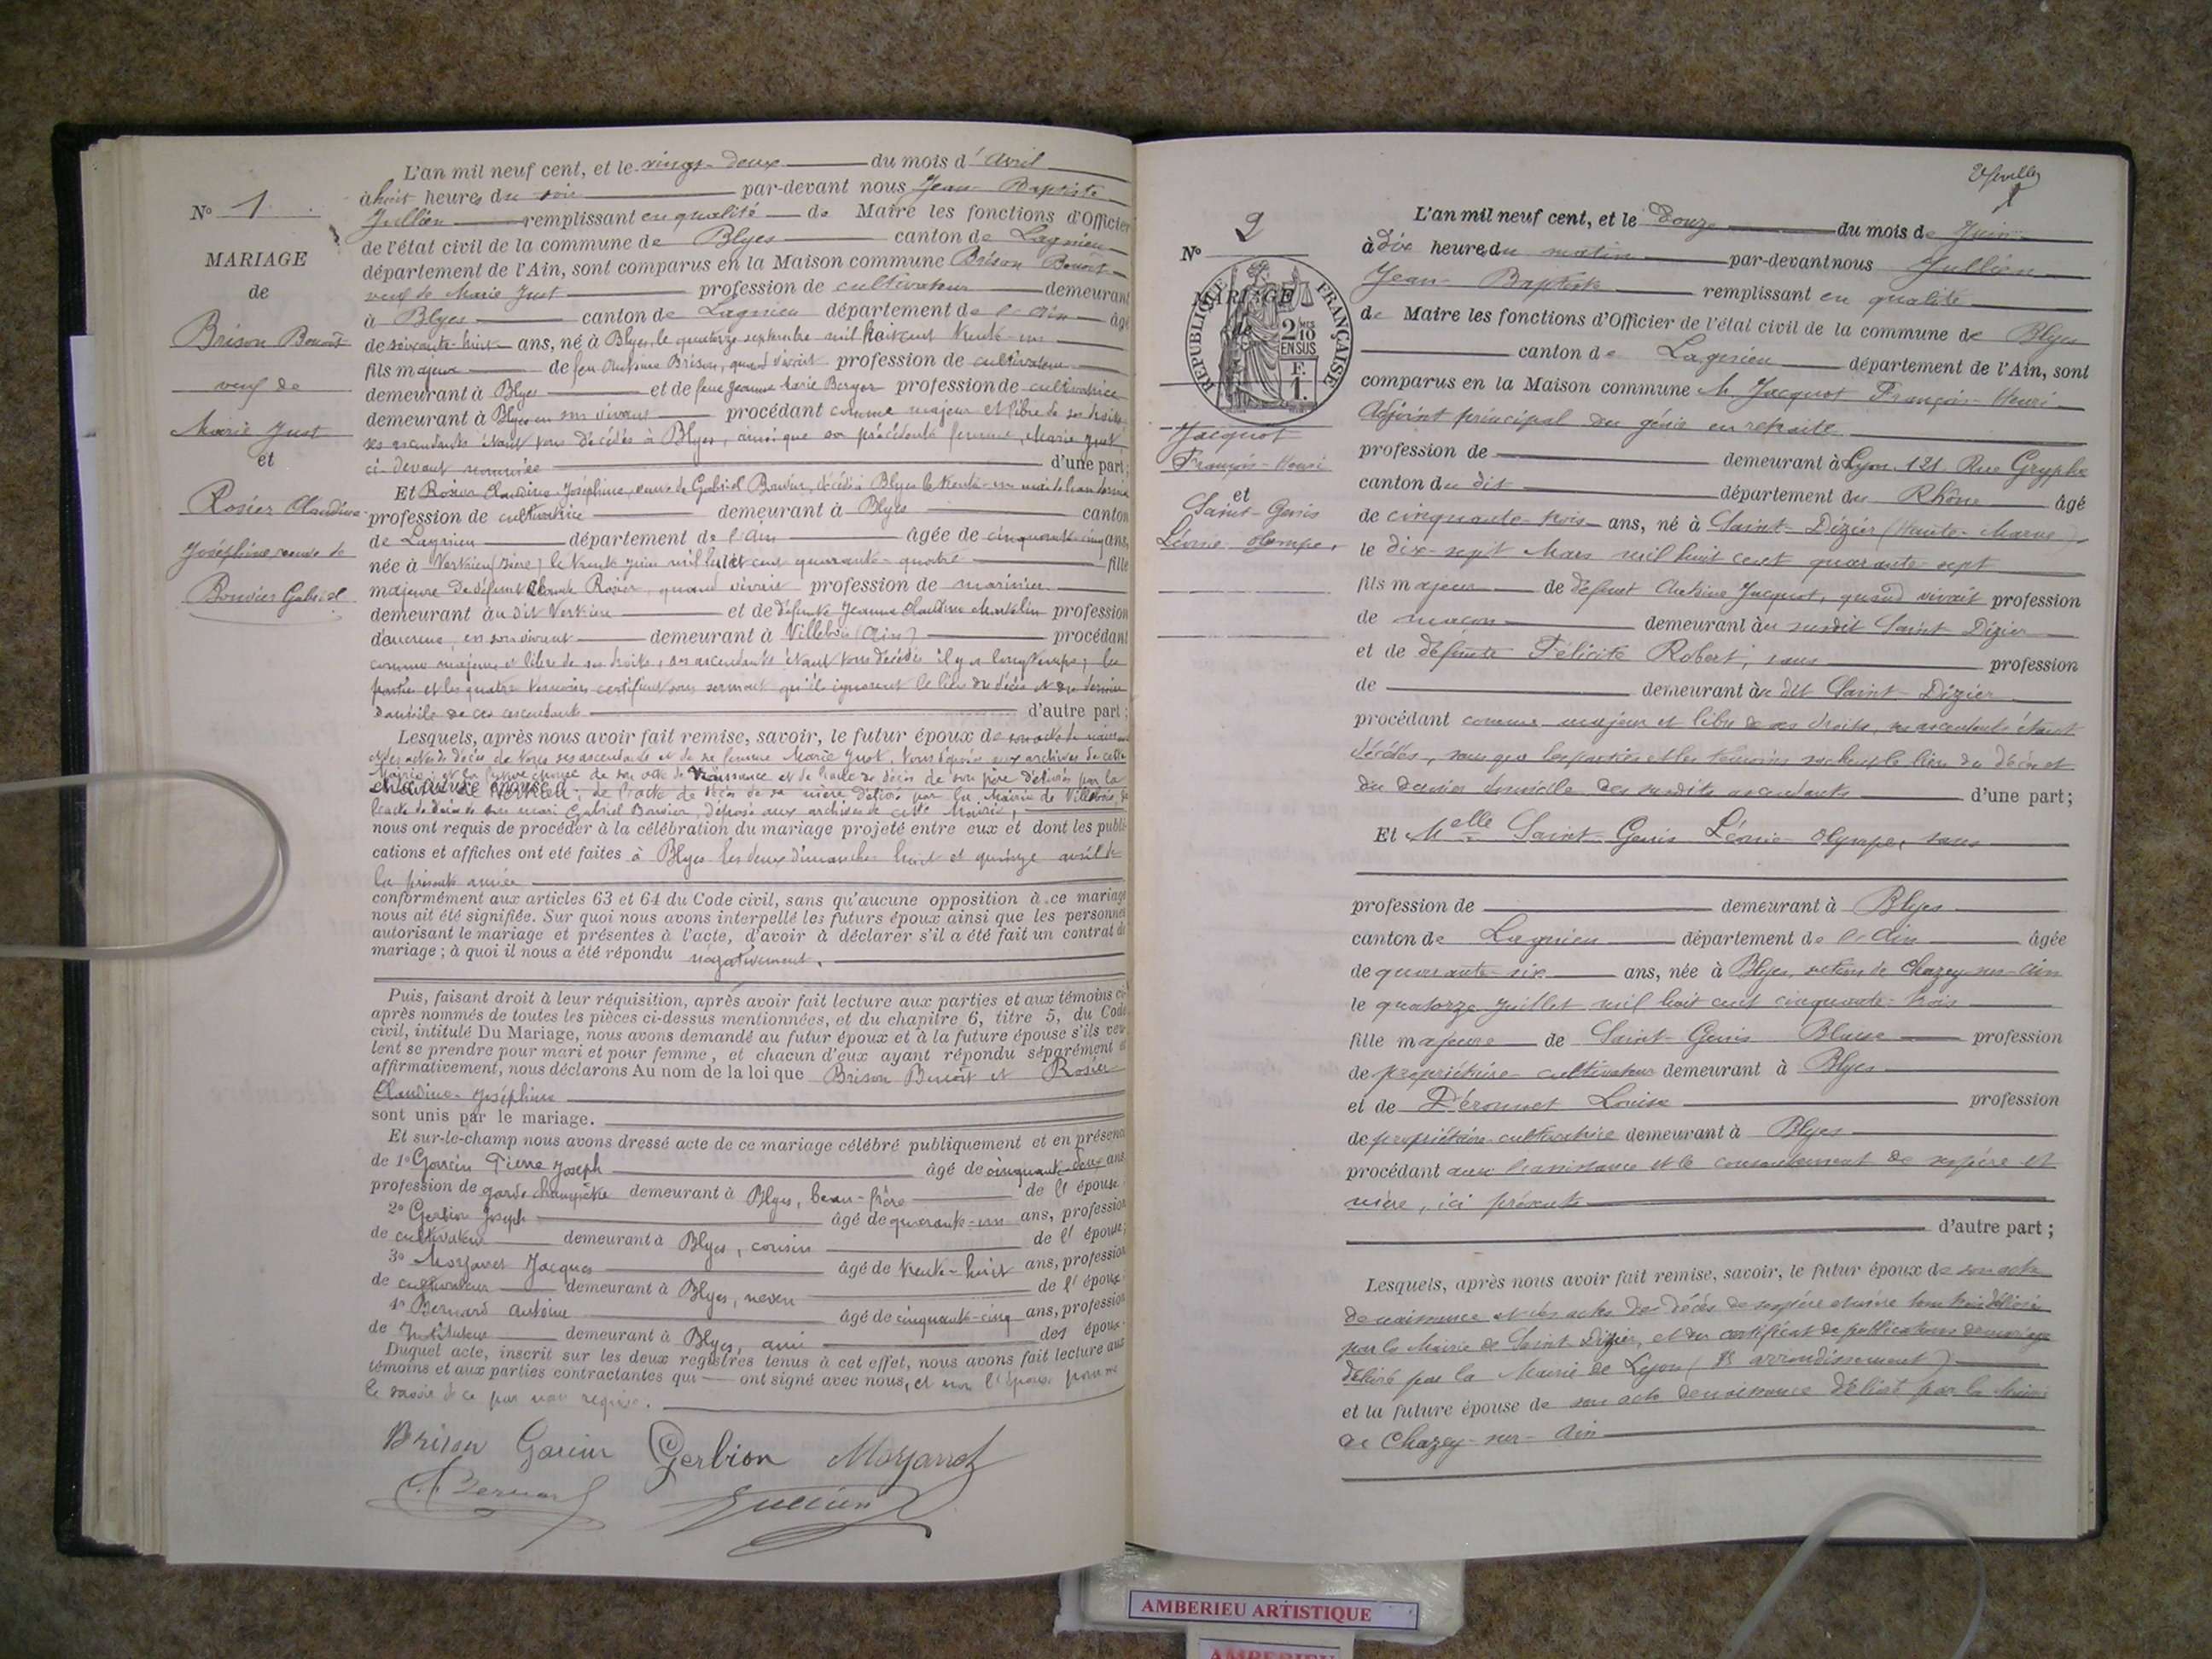 L'an mil neuf cent, et le vingt-deux du mois d'Avril
à huit heures du soir par-devant nous Jean-Baptiste
Jullien remplissant en qualité de Maire les fonctions d'Officier
de l'état civil de la commune de Blyes canton de Lagnieu
département de l'Ain, sont comparus en la Maison commune Brison Benoît
veuf de Marie Just profession de cultivateur demeurant
à Blyes canton de Lagnieu département de l'Ain âgé
de soixante-huit ans, né à Blyes, le quatorze septembre mil huit cent trente-un
fils majeur de feu Antoine Brison, quand vivait profession de cultivateur
demeurant à Blyes et de feue Jeanne Marie Berger profession de cultivatrice
demeurant à Blyes en son vivant procédant comme majeur et libre de ses droits
ses ascendants étant tous décédés à Blyes, ainsi que sa précédente femme, Marie Just
ci-devant nommée d'une part;
Et Rosier Claudine-Joséphine, veuve de Gabriel Bouvier, décédé à Blyes le trente-un
profession de cultivatrice demeurant à Blyes canton
de Lagnieu département de l'Ain âgée de cinquante-cinq ans,
née à Vertrieu (Isère) le trente juin mil huit cent quarante-quatre fille
majeure de défunt Claude Rosier, quand vivait profession de marinier
demeurant au dit Vertrieu et de défunte Jeanne Claudine profession
d'aucune, en son vivant demeurant à Villebois (Ain) procédant
comme majeure et libre de ses droits, ses ascendants étant tous décédés il y a longtemps; les
parties et les quatre témoins certifient sous serment qu'ils ignorent le lieu du décès et du dernier
domicile de ces ascendants d'autre part;
Lesquels, après nous avoir fait remise, savoir, le futur époux de son acte de
et des actes de décès de tous ses ascendants et de sa femme Marie Just, tous déposés aux archives de cette
Mairie; et la future épouse de son acte de naissance et de l'acte de décès de son père délivrés par la
Mairie de Vertrieu, de l'acte de décès de sa mère délivré par la Mairie de Villebois, de
l'acte de décès de son mari Gabriel Bouvier, déposé aux archives de cette Mairie,
nous ont requis de procéder à la célébration du mariage projeté entre eux et dont les publi-
cations et affiches ont été faites à Blyes les deux dimanches huit et quinze avril de
la présente année
conformément aux articles 63 et 64 du Code civil, sans qu'aucune opposition à ce mariage
nous ait été signifiée. Sur quoi nous avons interpellé les futurs époux ainsi que les personnes
autorisant le mariage et présentes à l'acte, d'avoir à déclarer s'il a été fait un contrat de
mariage; à quoi il nous a été répondu négativement.
Puis, faisant droit à leur réquisition, après avoir fait lecture aux parties et aux témoins ci-
après nommés de toutes les pièces ci-dessus mentionnées, et du chapitre 6, titre 5, du Code
civil, intitulé Du Mariage, nous avons demandé au futur époux et à la future épouse s'ils veu-
lent se prendre pour mari et pour femme, et chacun d'eux ayant répondu séparément et
affirmativement, nous déclarons Au nom de la loi que Brison Benoît et Rosier
Claudine-Joséphine
sont unis par le mariage.
Et sur-le-champ nous avons dressé acte de ce mariage célébré publiquement et en présence
de 1° Garrin Pierre Joseph âgé de cinquante-deux ans
profession de garde champêtre demeurant à Blyes, beau-frère de l'épouse
2° Gerbion Joseph âgé de quarante-un ans, profession
de cultivateur demeurant à Blyes, cousin de l'épouse;
3° Morjarret Jacques âgé de trente-huit ans, profession
de cultivateur demeurant à Blyes, neveu de l'épouse
4° Bernard Antoine âgé de cinquante-cinq ans, profession
de Instituteur demeurant à Blyes, ami des époux
Duquel acte, inscrit sur les deux registres tenus à cet effet, nous avons fait lecture aux
témoins et aux parties contractantes qui ont signé avec nous, et non l'épouse pour ne
le savoir de ce par nous requise.
Brison Garin Gerbion Morjarret
Bernard Jullien
N° 1
MARIAGE
de
Brison Benoît
veuf de
Marie Just
et
Rosier Claudine
Joséphine veuve de
Bouvier Gabriel
N° 2
MARIAGE
RÉPUBLIQUE FRANÇAISE
2/10
EN SUS
F.
1.
Jacquot
François-Henri
et
Saint-Genis
Léonie Olympe,
L'an mil neuf cent, et le Douze du mois de Juin
à dix heures du matin par-devant nous Jullien
Jean-Baptiste remplissant en qualité
de Maire les fonctions d'Officier de l'état civil de la commune de Blyes
canton de Lagnieu département de l'Ain, sont
comparus en la Maison commune M. Jacquot François-Henri
Adjoint principal du génie en retraite
profession de demeurant à Lyon 121 Rue Gryphe
canton du dit département du Rhône âgé
de cinquante-trois ans, né à Saint-Dizier (Haute-Marne)
le dix-sept Mars mil huit cent quarante-sept
fils majeur de défunt Antoine Jacquot, quand vivait profession
de maçon demeurant au susdit Saint-Dizier
et de défunte Félicité Robert, sans profession
de demeurant au dit Saint-Dizier
procédant comme majeur et libre de ses droits, ses ascendants étant
décédés, sans que les parties et les témoins sachent le lieu du décès et
du dernier domicile des susdits ascendants d'une part;
Et Melle Saint-Genis Léonie-Olympe, sans
profession de demeurant à Blyes
canton de Lagnieu département de l'Ain âgée
de quarante-six ans, née à Blyes, section de Chazey-sur-Ain
le quatorze Juillet mil huit cent cinquante-trois
fille majeure de Saint-Genis Blaise profession
de propriétaire-cultivateur demeurant à Blyes
et de Péronnet Louise profession
de propriétaire-cultivatrice demeurant à Blyes
procédant avec l'assistance et le consentement de ses père et
mère, ici présents
d'autre part;
Lesquels, après nous avoir fait remise, savoir, le futur époux de son acte
de naissance et des actes des décès de ses père et mère tous trois délivrés
par la Mairie de Saint-Dizier, et du certificat de publications de mariage
délivré par la Mairie de Lyon ( arrondissement)
et la future épouse de son acte de naissance délivré par la Mairie
de Chazey-sur-Ain
AMBERIEU ARTISTIQUE
AMBERIEU